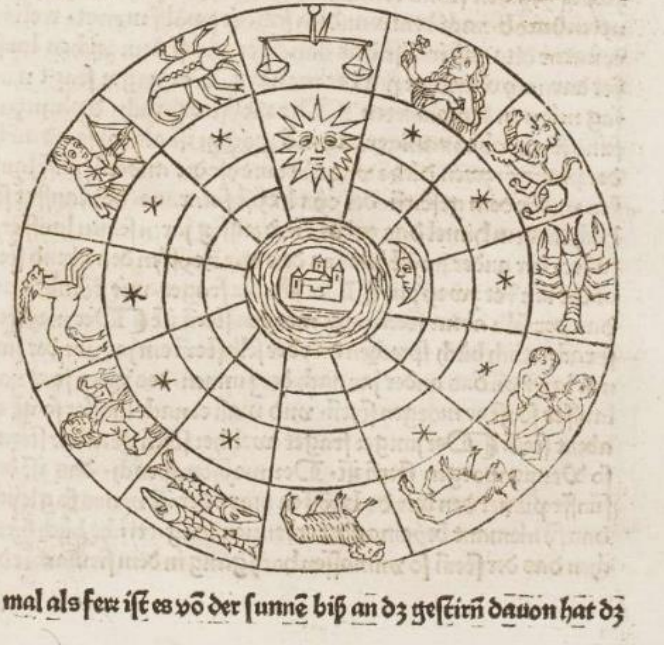 mal als ferr ist es võ der sunnẽ biß an dꝫ gestirñ dauon hat dꝫ